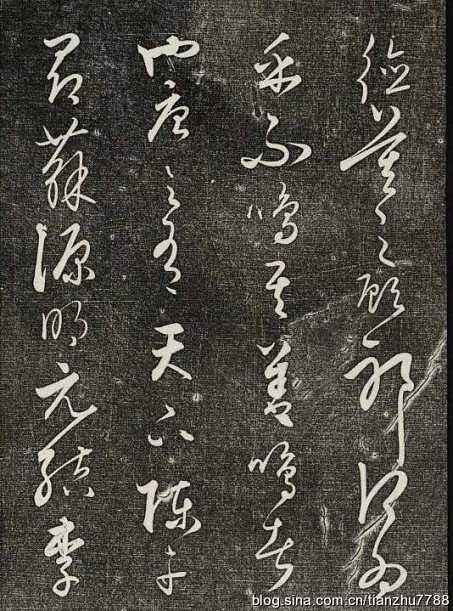 德莫之顧邪何為
乎不鳴其善鳴者
也唐之有天下陳子
昂蘇源明元結李
blog.sina.com.cn/tianzhu7788